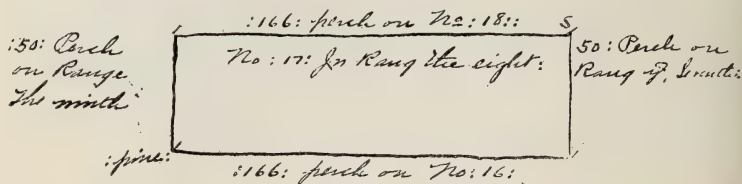 :166: perch on No: 18::
S
:50: Perch
on Range
The ninth
No: 17: In Rang the eight:
50: Perch on
Rang
:pine:
:166: perch on No: 16: